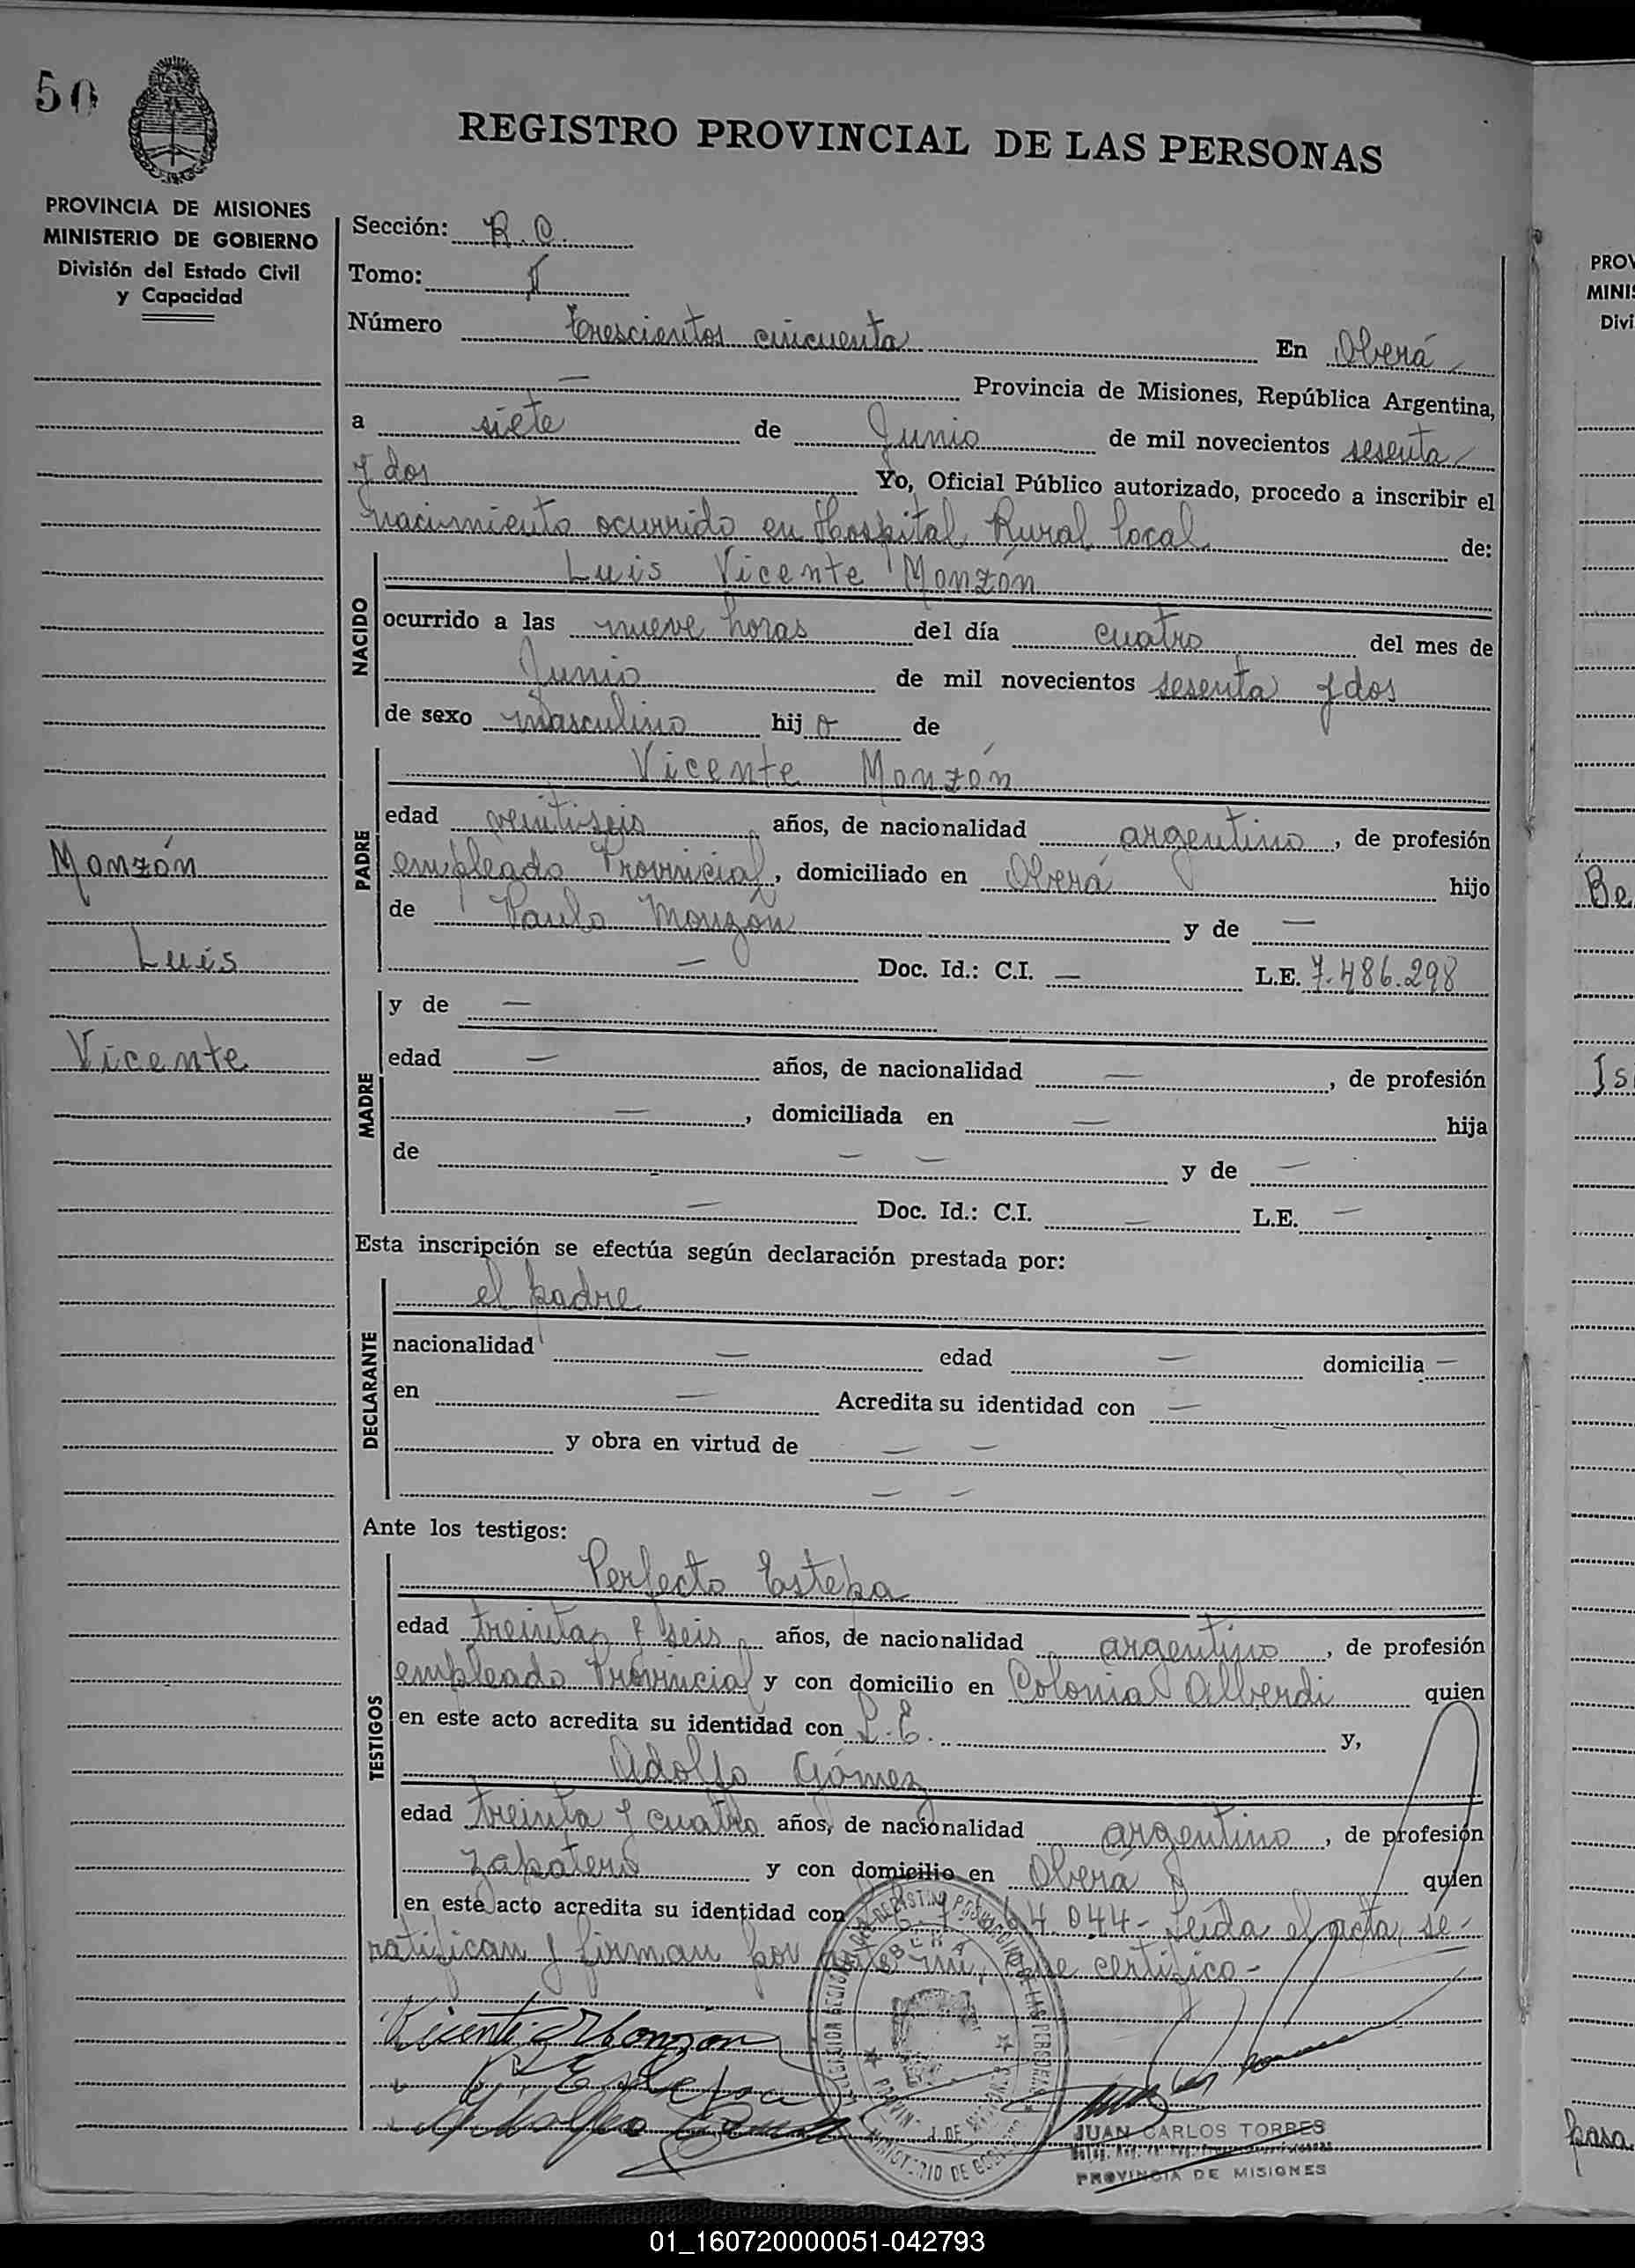 50
REGISTRO PROVINCIAL DE LAS PERSONAS
PROVINCIA DE MISIONES
MINISTERIO DE GOBIERNO
División del Estado Civil
y Capacidad
Monzón
Luis
Vicente
Sección: R. C.
Tomo: I
Número Trescientos cincuenta En Oberá
— Provincia de Misiones, República Argentina,
a siete de Junio de mil novecientos sesenta
y dos Yo, Oficial Público autorizado, procedo a inscribir el
nacimiento ocurrido en Hospital Rural local de:
NACIDO
Luis Vicente Monzón
ocurrido a las nueve horas del día cuatro del mes de
Junio de mil novecientos sesenta y dos
de sexo masculino hijo de
PADRE
Vicente Monzón
edad veintiseis años, de nacionalidad argentino, de profesión
empleado Provincial, domiciliado en Oberá hijo
de Paulo Monzón y de —
— Doc. Id.: C.I. — L.E. 7.486.298
MADRE
y de —
edad — años, de nacionalidad —, de profesión
—, domiciliada en — hija
de — — y de —
— Doc. Id.: C.I. — L.E. —
Esta inscripción se efectúa según declaración prestada por:
DECLARANTE
el padre
nacionalidad — edad — domicilia —
en — Acredita su identidad con —
y obra en virtud de — —
— —
Ante los testigos:
TESTIGOS
Perfecto Estepa
edad treinta y seis años, de nacionalidad argentino, de profesión
empleado Provincial y con domicilio en Colonia Alberdi quien
en este acto acredita su identidad con L.E. y,
Adolfo Gómez
edad treinta y cuatro años, de nacionalidad argentino, de profesión
zapatero y con domicilio en Oberá quien
en este acto acredita su identidad con 4.044- Leida el acta, se
ratifican y firman por ante mi, que certifico-
Vicente Monzon
P Estepa
Adolfo Gomez
JUAN CARLOS TORRES
PROVINCIA DE MISIONES
PROV
MINIS
Divi
Be
Is
pasa
01_160720000051-042793